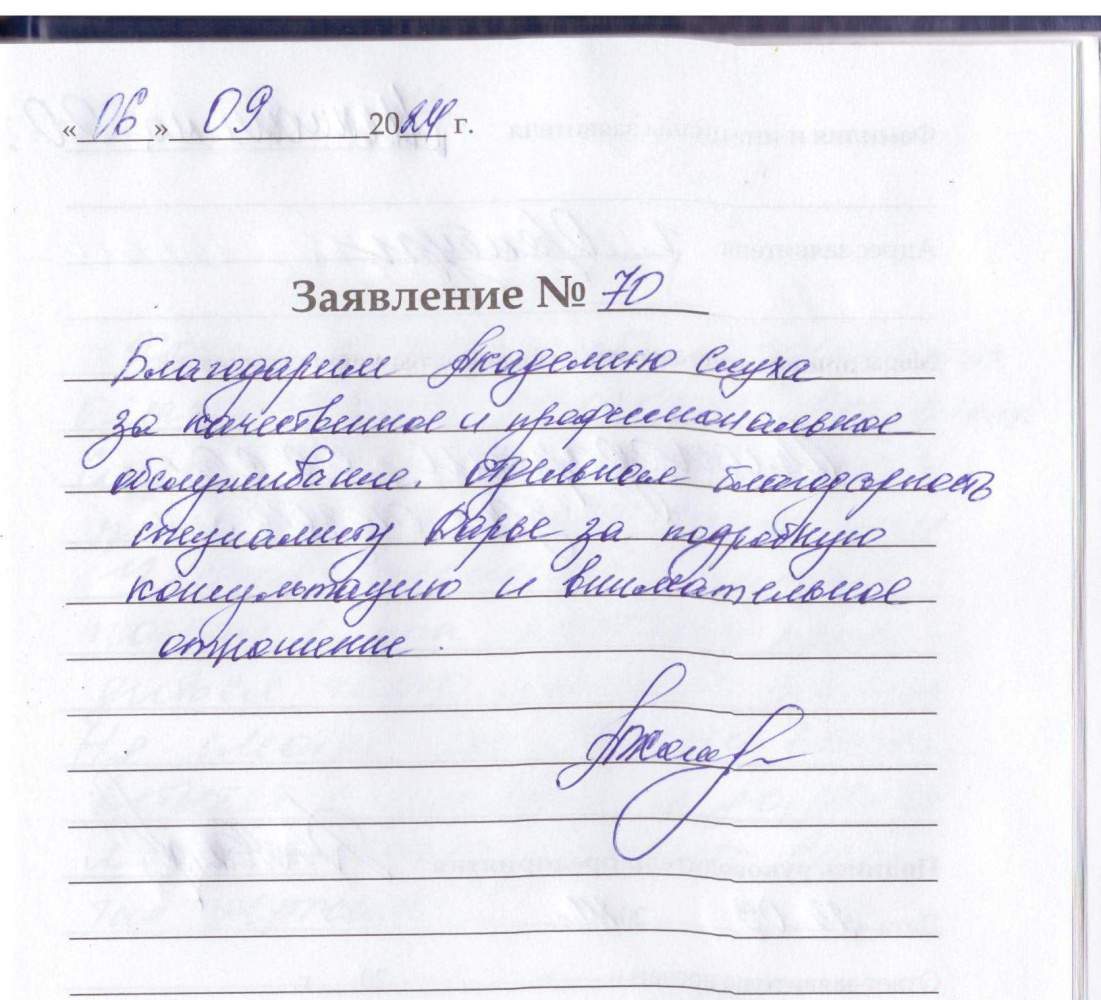 « 06 » 09 2024 г.
Заявление № 70
Благодарим Академию Слуха
за качественное и профессиональное
обслуживание. Отдельная благодарность
специалисту Дарье за подробную
консультацию и внимательное
отношение.